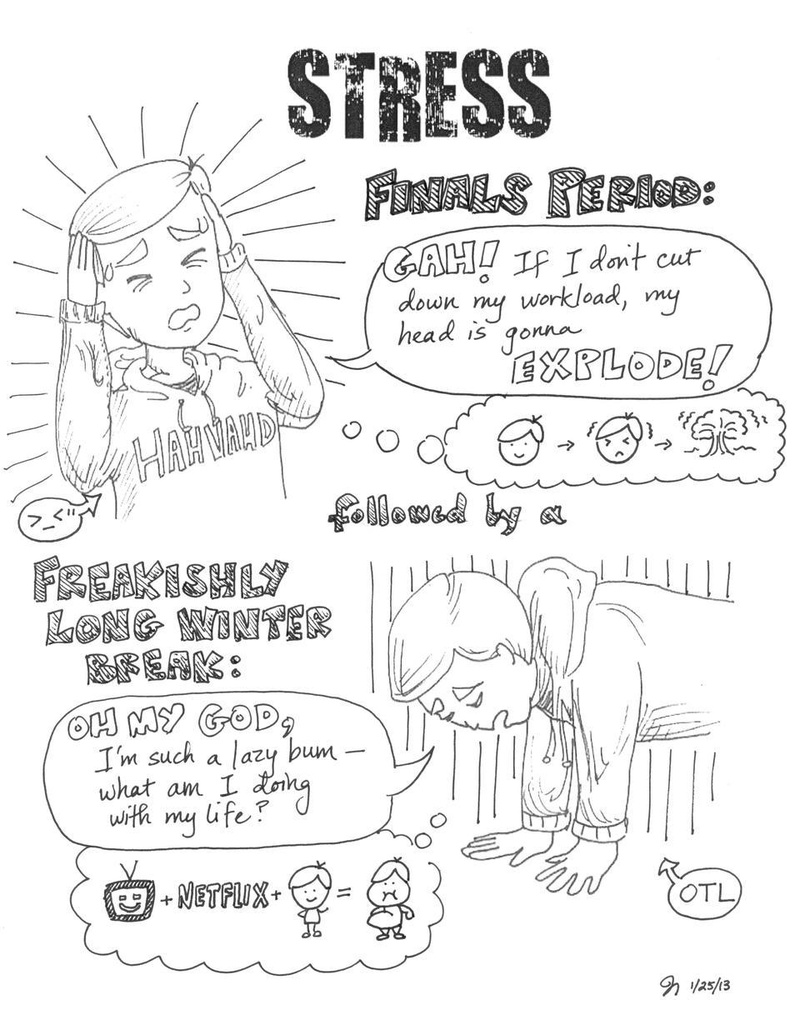 STRESS
FINALS PERIOD:
GAH! If I don't cut
down my workload, my
head is gonna
EXPLODE!
HAHVAHD
>_<"
followed by a
FREAKISHLY
LONG WINTER
BREAK:
OH MY GOD,
I'm such a lazy bum —
what am I doing
with my life?
+ NETFLIX + =
OTL
1/25/13